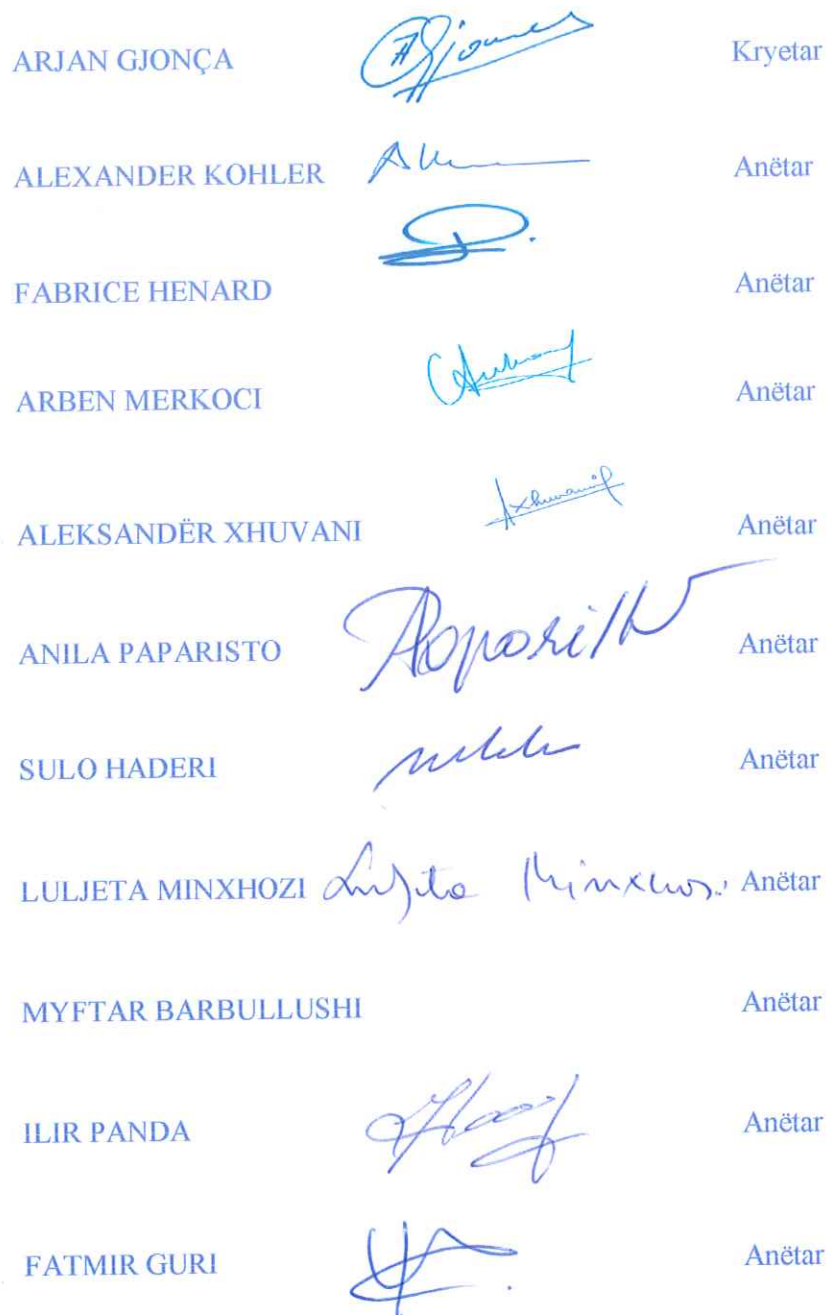 ARJAN GJONÇA Kryetar
ALEXANDER KOHLER Anëtar
FABRICE HENARD Anëtar
ARBEN MERKOCI Anëtar
ALEKSANDËR XHUVANI Anëtar
ANILA PAPARISTO Anëtar
SULO HADERI Anëtar
LULJETA MINXHOZI Anëtar
MYFTAR BARBULLUSHI Anëtar
ILIR PANDA Anëtar
FATMIR GURI Anëtar